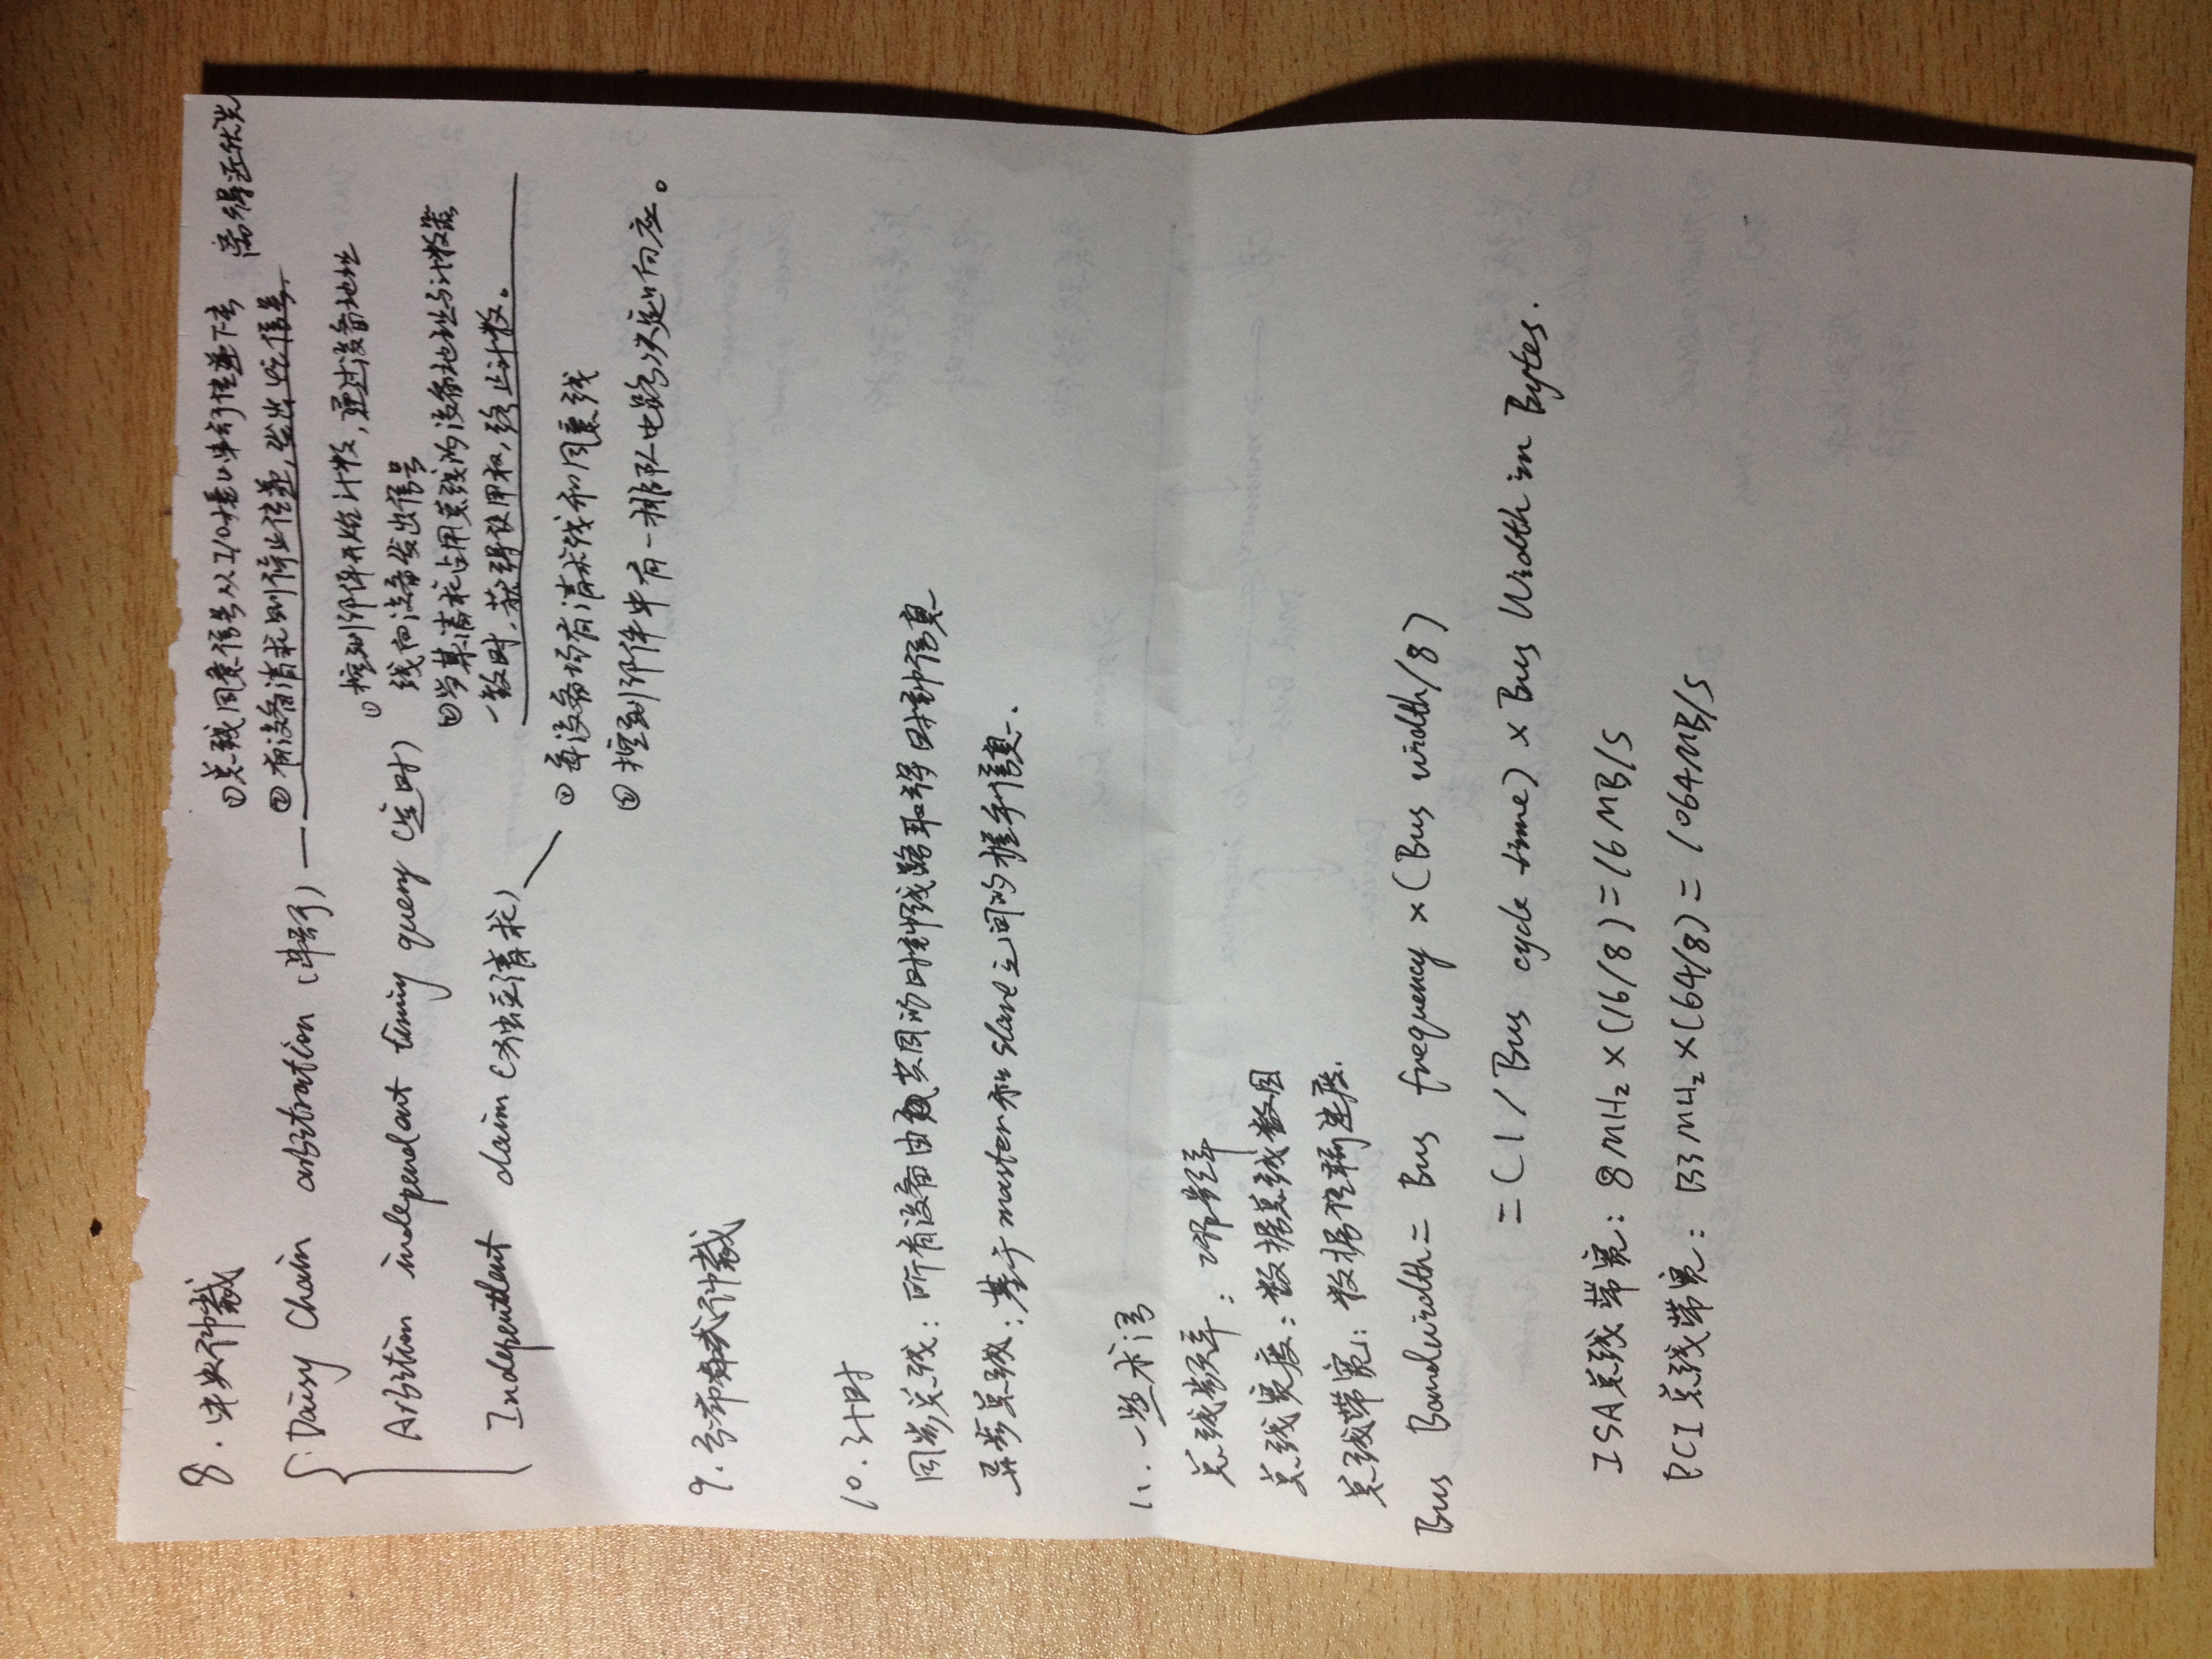 8. 中央仲裁
Daisy Chain arbitration (串行)
①总线同意信号从I/O接口串行传递下去 离得近优先
②有设备请求则停止传递,发出忙信号.
Arbition independent timing query (定时)
①控制部件开始计数,通过设备地址
线向设备发出信号
②当某请求占用总线的设备地址与计数器
一致时,获得使用权,终止计数。
Independent claim (独立请求)
①每设备均有请求线和同意线
②控制部件中有一排队电路决定响应。
9. 分布式仲裁
10. 计时
同步总线: 所有设备由共同的时钟线路取得时钟信息
异步总线: 基于master和slave之间的握手信息.
11. 一些术语
总线频率: 工作频率
总线宽度: 数据总线数目
总线带宽: 数据传输速度.
Bus Bandwidth = Bus frequency × (Bus width/8)
= (1 / Bus cycle time) × Bus Width in Bytes.
ISA总线带宽: 8MHz × (16/8) = 16MB/s
PCI总线带宽: 133MHz × (64/8) = 1064MB/s